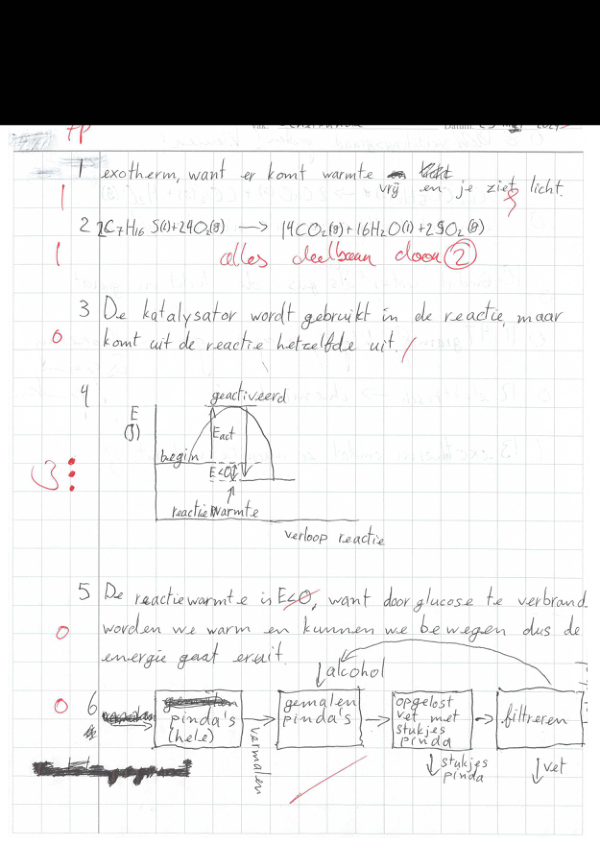 7p
1 exotherm, want er komt warmte
vrij en je ziet licht.
1
2 2C7H16 S(l)+24O2(g) → 14CO2(g)+16H2O(l)+2SO2(g)
1 alles deelbaar door 2
3 De katalysator wordt gebruikt in de reactie, maar
0 komt uit de reactie hetzelfde uit.
4 geactiveerd
E
(J)
Eact
begin
E<0
3
reactiewarmte
verloop reactie
5 De reactiewarmte is E<0, want door glucose te verbrand
0 worden we warm en kunnen we bewegen dus de
energie gaat eruit.
alcohol
0 6 pinda's (hele)
vermalen
gemalen pinda's
opgelost vet met stukjes pinda
filtreren
stukjes pinda
vet